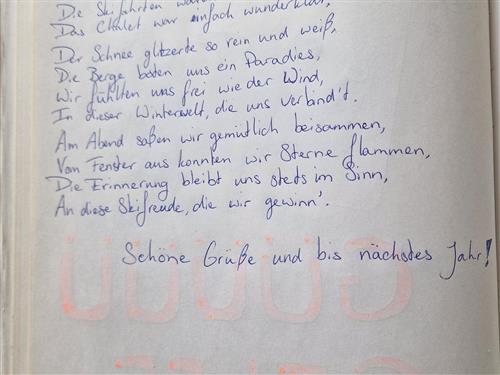 Die Skifahrten waren
Das Chalet war einfach wunderklar,
Der Schnee glitzerte so rein und weiß,
Die Berge boten uns ein Paradies,
Wir fühlten uns frei wie der Wind,
In dieser Winterwelt, die uns verbind't.
Am Abend saßen wir gemütlich beisammen,
Vom Fenster aus konnten wir Sterne flammen,
Die Erinnerung bleibt uns stets im Sinn,
An diese Skifreude, die wir gewinn'.
Schöne Grüße und bis nächstes Jahr!